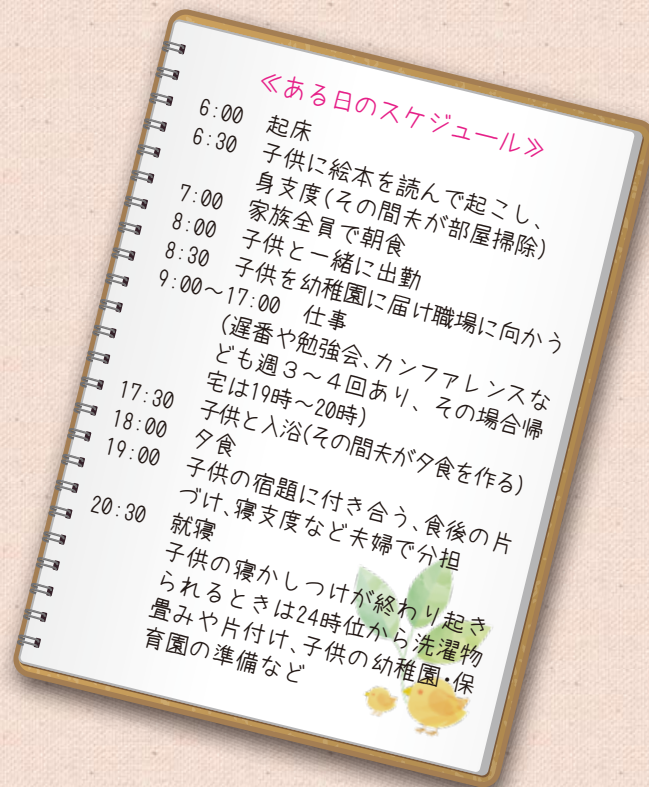 ≪ある日のスケジュール≫
6:00 起床
6:30 子供に絵本を読んで起こし、
身支度(その間夫が部屋掃除)
7:00 家族全員で朝食
8:00 子供と一緒に出勤
8:30 子供を幼稚園に届け職場に向かう
9:00～17:00 仕事
(遅番や勉強会、カンファレンスな
ども週３～４回あり、その場合帰
宅は19時～20時)
17:30 子供と入浴(その間夫が夕食を作る)
18:00 夕食
19:00 子供の宿題に付き合う、食後の片
づけ、寝支度など夫婦で分担
20:30 就寝
子供の寝かしつけが終わり起き
られるときは24時位から洗濯物
畳みや片付け、子供の幼稚園・保
育園の準備など